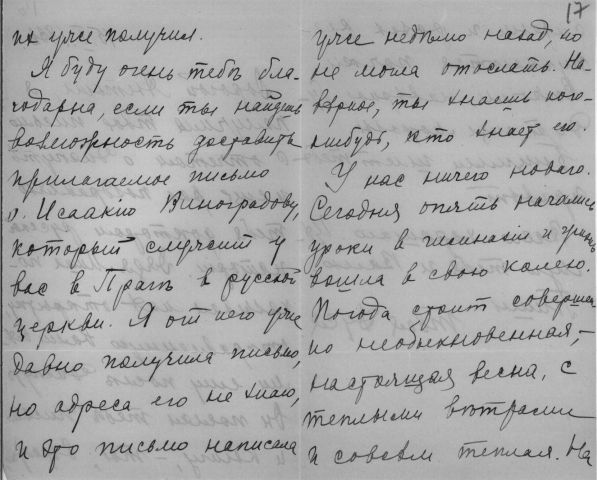 их уже получил.
Я буду очень тебѣ бла-
годарна, если ты найдешь
возможность доставить
прилагаемое письмо
о. Исаакію Виноградову,
который служит у
вас в Прагѣ в русской
церкви. Я от него уже
давно получила письмо,
но адреса его не знаю,
и это письмо написала
17
уже недѣлю назад, но
не могла отослать. На-
вѣрное, ты знаешь кого-
нибудь, кто знает его.
У нас ничего новаго.
Сегодня опять начались
уроки в гимназіи и жизнь
вошла в свою колею.
Погода стоит совершен
но необыкновенная, –
настоящая весна, с
теплыми вѣтрами
и совсѣм теплая. На